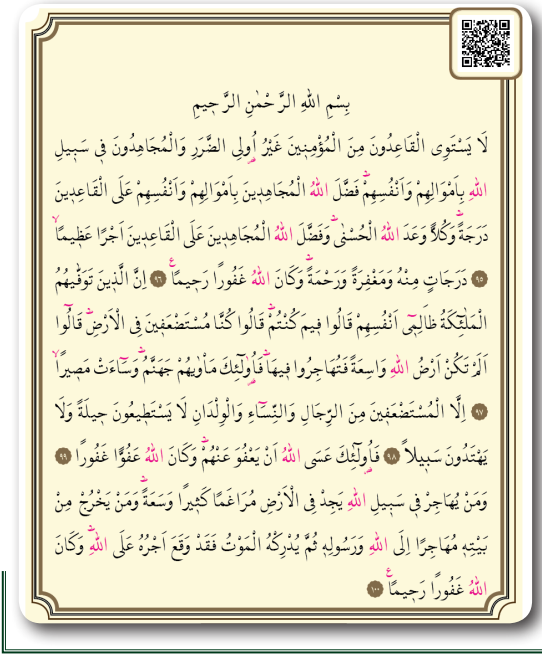 بِسْمِ اللهِ الرَّحْمٰنِ الرَّحٖيمِ
لَا يَسْتَوِى الْقَاعِدُونَ مِنَ الْمُؤْمِنٖينَ غَيْرُ اُولِى الضَّرَرِ وَالْمُجَاهِدُونَ فٖى سَبٖيلِ
اللهِ بِاَمْوَالِهِمْ وَاَنْفُسِهِمْؕ فَضَّلَ اللهُ الْمُجَاهِدٖينَ بِاَمْوَالِهِمْ وَاَنْفُسِهِمْ عَلَى الْقَاعِدٖينَ
دَرَجَةًؕ وَكُلًّا وَعَدَ اللهُ الْحُسْنٰىؕ وَفَضَّلَ اللهُ الْمُجَاهِدٖينَ عَلَى الْقَاعِدٖينَ اَجْرًا عَظٖيمًاۙ
﴿٩٥﴾ دَرَجَاتٍ مِنْهُ وَمَغْفِرَةً وَرَحْمَةًؕ وَكَانَ اللهُ غَفُورًا رَحٖيمًاࣖ ﴿٩٦﴾ اِنَّ الَّذٖينَ تَوَفّٰيهُمُ
الْمَلٰٓئِكَةُ ظَالِمٖٓى اَنْفُسِهِمْ قَالُوا فٖيمَ كُنْتُمْؕ قَالُوا كُنَّا مُسْتَضْعَفٖينَ فِى الْاَرْضِؕ قَالُٓوا
اَلَمْ تَكُنْ اَرْضُ اللهِ وَاسِعَةً فَتُهَاجِرُوا فٖيهَاؕ فَاُولٰٓئِكَ مَاْوٰيهُمْ جَهَنَّمُؕ وَسَٓاءَتْ مَصٖيرًاۙ
﴿٩٧﴾ اِلَّا الْمُسْتَضْعَفٖينَ مِنَ الرِّجَالِ وَالنِّسَٓاءِ وَالْوِلْدَانِ لَا يَسْتَطٖيعُونَ حٖيلَةً وَلَا
يَهْتَدُونَ سَبٖيلاًۙ ﴿٩٨﴾ فَاُولٰٓئِكَ عَسَى اللهُ اَنْ يَعْفُوَ عَنْهُمْؕ وَكَانَ اللهُ عَفُوًّا غَفُورًا ﴿٩٩﴾
وَمَنْ يُهَاجِرْ فٖى سَبٖيلِ اللهِ يَجِدْ فِى الْاَرْضِ مُرَاغَمًا كَثٖيرًا وَسَعَةًؕ وَمَنْ يَخْرُجْ مِنْ
بَيْتِهٖ مُهَاجِرًا اِلَى اللهِ وَرَسُولِهٖ ثُمَّ يُدْرِكْهُ الْمَوْتُ فَقَدْ وَقَعَ اَجْرُهُ عَلَى اللهِؕ وَكَانَ
اللهُ غَفُورًا رَحٖيمًاࣖ ﴿١٠٠﴾